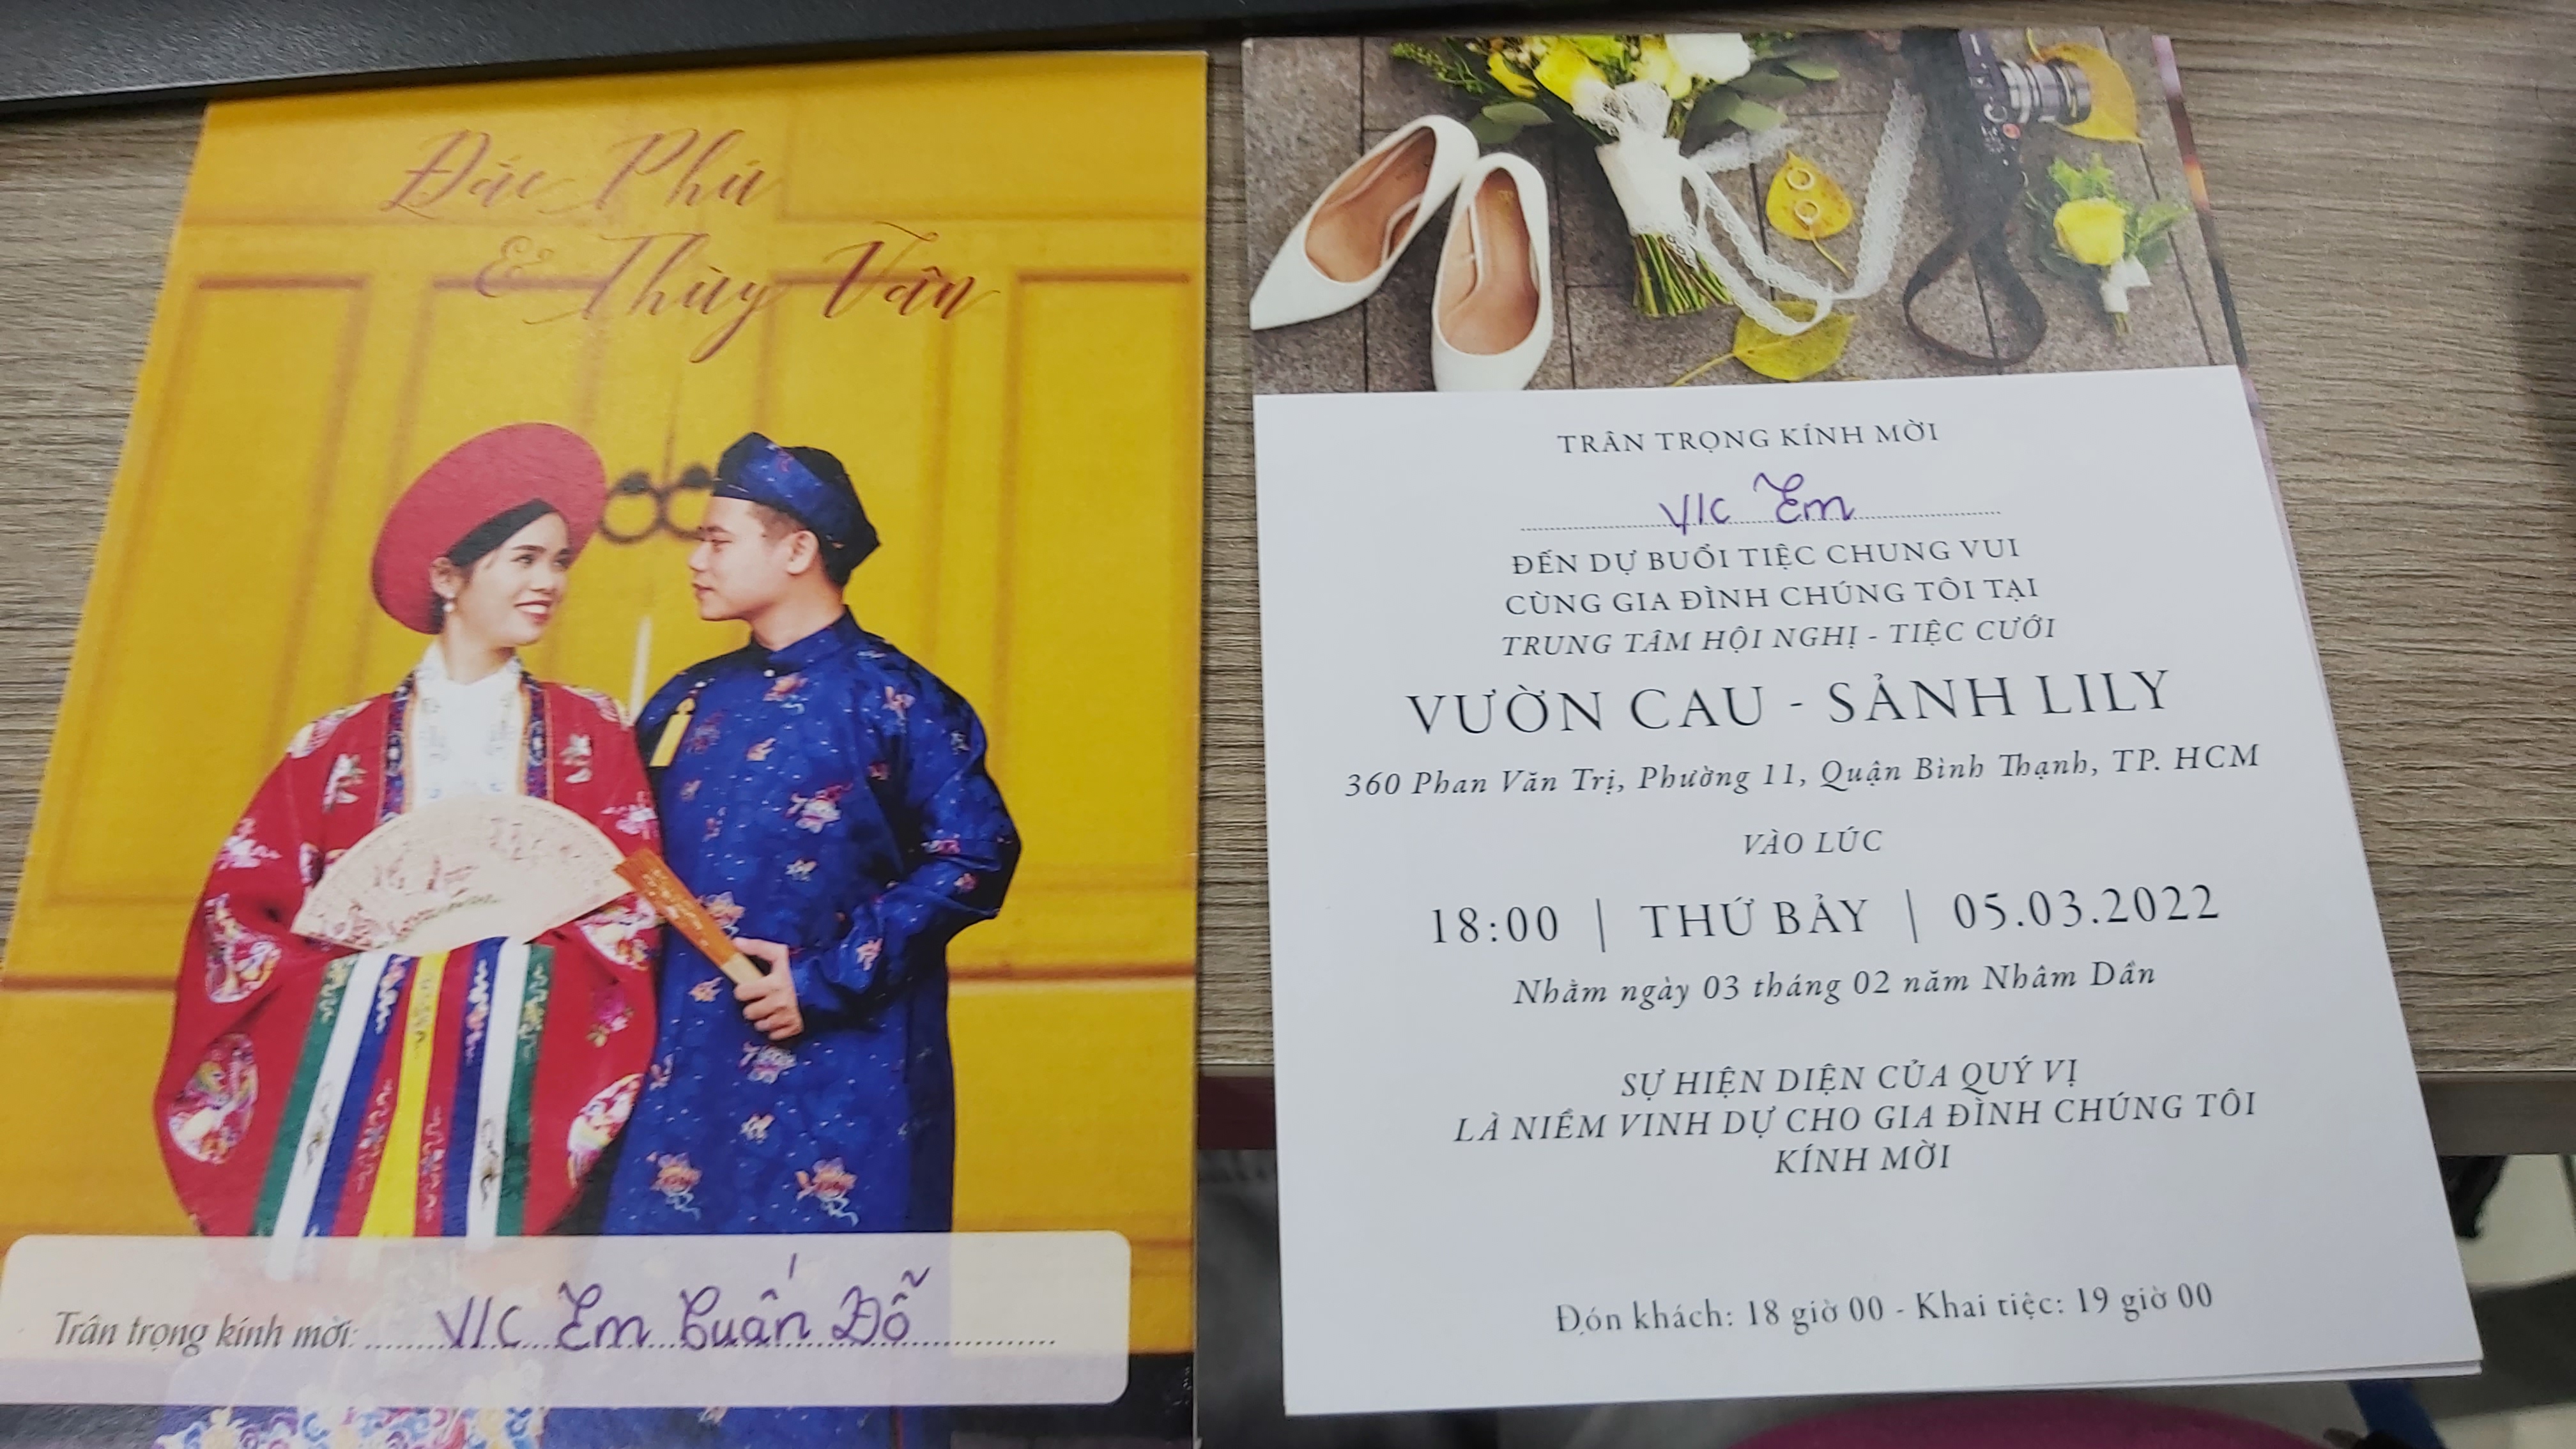 Đức Phú
& Thùy Vân
Trân trọng kính mời: V/c Em Tuấn Đỗ
TRÂN TRỌNG KÍNH MỜI
V/c Em
ĐẾN DỰ BUỔI TIỆC CHUNG VUI
CÙNG GIA ĐÌNH CHÚNG TÔI TẠI
TRUNG TÂM HỘI NGHỊ - TIỆC CƯỚI
VƯỜN CAU - SẢNH LILY
360 Phan Văn Trị, Phường 11, Quận Bình Thạnh, TP. HCM
VÀO LÚC
18:00 | THỨ BẢY | 05.03.2022
Nhằm ngày 03 tháng 02 năm Nhâm Dần
SỰ HIỆN DIỆN CỦA QUÝ VỊ
LÀ NIỀM VINH DỰ CHO GIA ĐÌNH CHÚNG TÔI
KÍNH MỜI
Đón khách: 18 giờ 00 - Khai tiệc: 19 giờ 00